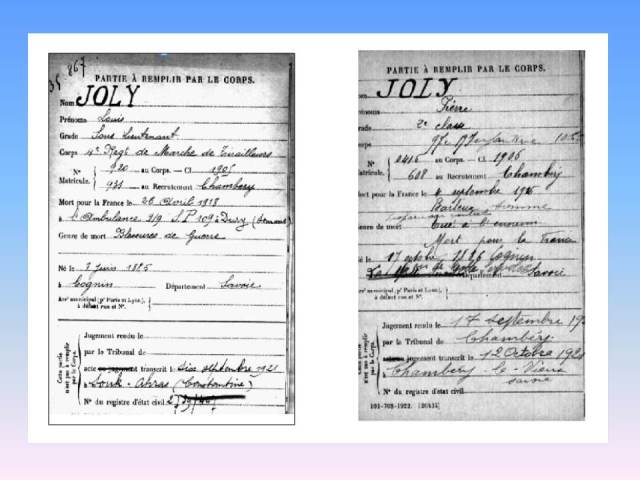 35 867
PARTIE À REMPLIR PAR LE CORPS.
Nom JOLY
Prénoms Louis
Grade Sous Lieutenant
Corps 4e Regt de Marche de Tirailleurs
N° 920 au Corps. — Cl. 1905
Matricule. 931 au Recrutement Chambery
Mort pour la France le 26 Avril 1918
à l'Ambulance 3/9 S.P 109 à Dury (Somme)
Genre de mort Blessures de Guerre
Né le 3 Juin 1885
à Cognin Département Savoie
Arrt municipal (pr Paris et Lyon), à défaut rue et N°.
Cette partie n'est pas à remplir par le Corps.
Jugement rendu le
par le Tribunal de
acte ou jugement transcrit le dix septembre 1921
à Souk-Ahras (Constantine)
N° du registre d'état civil
PARTIE À REMPLIR PAR LE CORPS.
Nom JOLY
Prénoms Pierre
Grade 2e classe
Corps 97e
N° 2415 au Corps. — Cl. 1906
Matricule. 608 au Recrutement Chambéry
Mort pour la France le 4 septembre 1916
Barleux Somme
Genre de mort Tué à l'ennemi
Mort pour la France
Né le 17 octobre 1886 Cognin
Département Savoie
Arrt municipal (pr Paris et Lyon), à défaut rue et N°.
Jugement rendu le 17 septembre 192
par le Tribunal de Chambéry
acte ou jugement transcrit le 12 Octobre 192
à Chambéry-le-Vieux
Savoie
N° du registre d'état civil
101-708-1922. [26434]